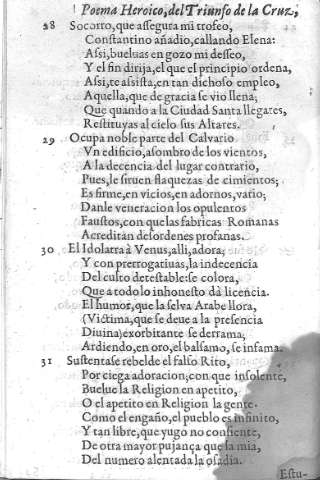 Poema Heroico, del Triunfo de la Cruz,
28 Socorro, que assegura mi trofeo,
Constantino añadio, callando Elena:
Assi, bueluas en gozo mi desseo,
Y el fin dirija, el que el principio ordena,
Assi, te assista, en tan dichoso empleo,
Aquella, que de gracia se vio llena;
Que quando a la Ciudad Santa llegares,
Restituyas al cielo sus Altares.
29 Ocupa noble parte del Calvario
Vn edificio, asombro de los vientos,
A la decencia del lugar contrario,
Pues, le siruen flaquezas de cimientos;
Es firme, en vicios, en adornos, vario;
Danle veneracion los opulentos
Faustos, con que las fabricas Romanas
Acreditan desordenes profanas.
30 El Idolatra à Venus, alli, adora;
Y con prerrogatiuas, la indecencia
Del culto detestable: se colora,
Que a todo lo inhonesto dà licencia.
El humor, que la selva Arabe llora,
(Victima, que se deue a la presencia
Diuina) exorbitante se derrama;
Ardiendo, en oro, el balsamo, se infama.
31 Sustentase rebelde el falso Rito,
Por ciega adoracion; con que insolente,
Buelue la Religion en apetito,
O el apetito en Religion la gente.
Como el engaño, el pueblo es infinito,
Y tan libre, que yugo no consiente,
De otra mayor pujança que la mia,
Del numero alentada la osadia.
Estu-